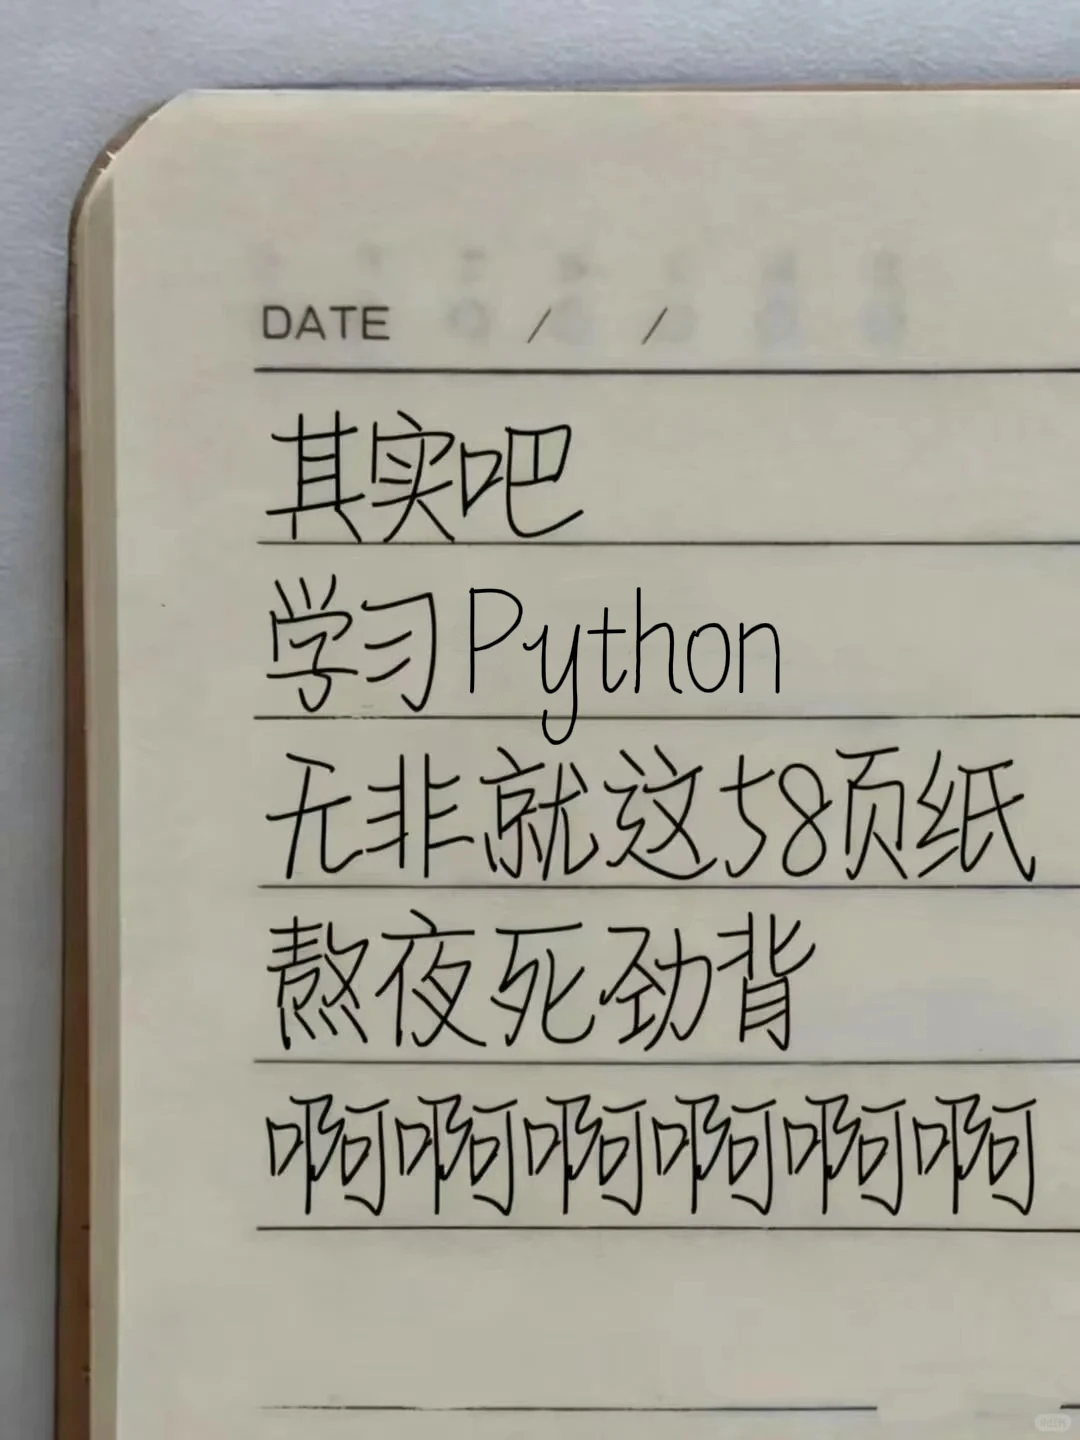 DATE / /
其实吧
学习Python
无非就这58页纸
熬夜死劲背
啊啊啊啊啊啊